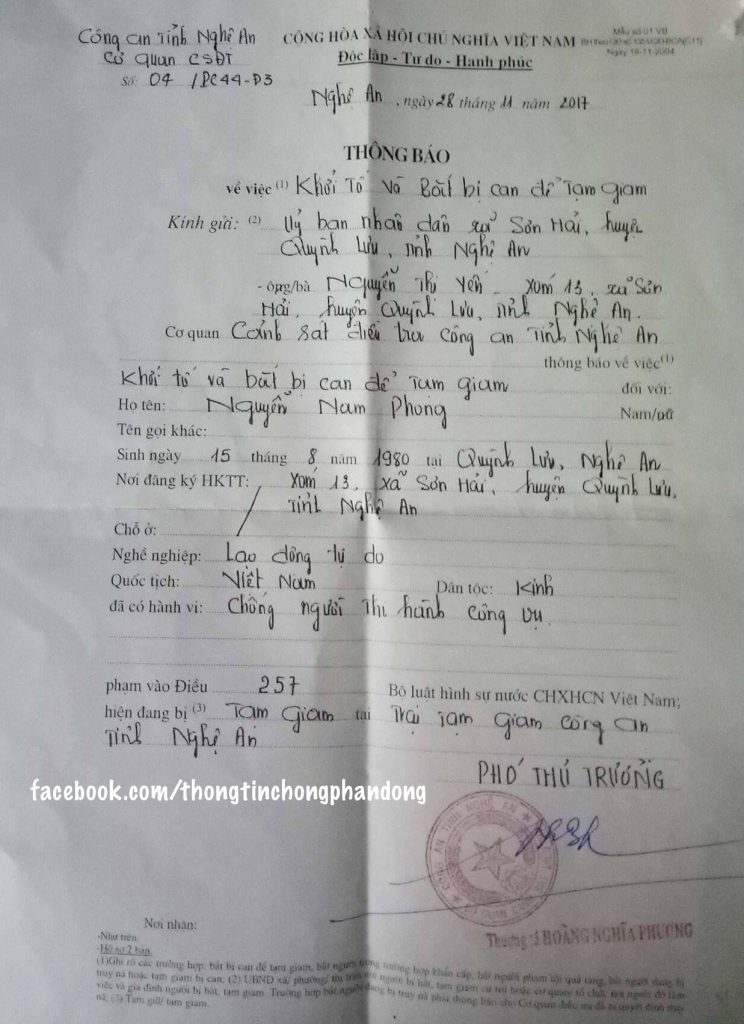 Công an Tỉnh Nghệ An
Cơ quan CSĐT
Số: 04 /PC44-Đ3
CỘNG HÒA XÃ HỘI CHỦ NGHĨA VIỆT NAM
Độc lập - Tự do - Hạnh phúc
Mẫu số 01 VB
Ngày 18-11-2004
Nghệ An, ngày 28 tháng 11 năm 2017
THÔNG BÁO
về việc (1) Khởi tố và Bắt bị can để Tạm giam
Kính gửi: (2) Uỷ ban nhân dân xã Sơn Hải, huyện
Quỳnh Lưu, tỉnh Nghệ An
- ông/bà Nguyễn Thị Yến - Xóm 13, xã Sơn
Hải, huyện Quỳnh Lưu, tỉnh Nghệ An.
Cơ quan Cảnh sát điều tra công an Tỉnh Nghệ An
thông báo về việc(1)
Khởi tố và bắt bị can để Tạm giam đối với:
Họ tên: Nguyễn Nam Phong Nam/nữ
Tên gọi khác:
Sinh ngày 15 tháng 8 năm 1980 tại Quỳnh Lưu, Nghệ An
Nơi đăng ký HKTT: Xóm 13, xã Sơn Hải, huyện Quỳnh Lưu,
Tỉnh Nghệ An
Chỗ ở:
Nghề nghiệp: Lao động tự do
Quốc tịch: Việt Nam Dân tộc: Kinh
đã có hành vi: Chống người Thi hành công vụ
phạm vào Điều 257 Bộ luật hình sự nước CHXHCN Việt Nam;
hiện đang bị (3) Tạm Giam tại Trại Tạm giam công an
Tỉnh Nghệ An
PHÓ THỦ TRƯỞNG
facebook.com/thongtinchongphandong
CÔNG AN TỈNH NGHỆ AN
Thượng tá HOÀNG NGHĨA PHƯƠNG
Nơi nhận:
-Như trên.
-Hồ sơ 2 bản.
(1)Ghi rõ các trường hợp: bắt bị can để tạm giam, bắt người trong trường hợp khẩn cấp, bắt người phạm tội quả tang, bắt người đang bị
truy nã hoặc tạm giam bị can; (2) UBND xã/ phường/ thị trấn nơi người bị bắt, tạm giam cư trú hoặc cơ quan, tổ chức nơi người đó làm
việc và gia đình người bị bắt, tạm giam. Trường hợp bắt người đang bị truy nã phải thông báo cho Cơ quan điều tra đã ra quyết định truy
nã; (3) Tạm giữ/ tạm giam.